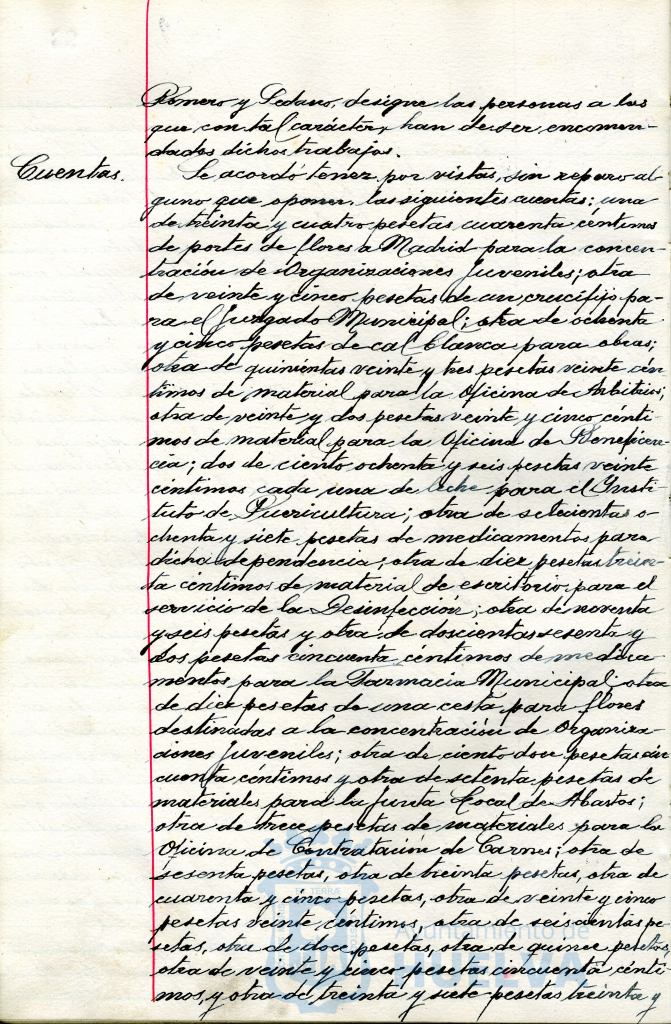 Romero y Sedano, designe las personas a las
que con tal carácter, han de ser encomen-
dados dichos trabajos.
Cuentas.
Se acordó tener por vistas, sin reparo al-
guno que oponer, las siguientes cuentas; una
de treinta y cuatro pesetas cuarenta céntimos
de portes de flores a Madrid para la concen-
tración de Organizaciones Juveniles; otra
de veinte y cinco pesetas de un crucifijo pa-
ra el Juzgado Municipal; otra de ochenta
y cinco pesetas de cal blanca para obras;
otra de quinientas veinte y tres pesetas veinte cén-
timos de material para la Oficina de Arbitrios;
otra de veinte y dos pesetas veinte y cinco cénti-
mos de material para la Oficina de Beneficen-
cia; dos de ciento ochenta y seis pesetas veinte
céntimos cada una de leche para el Insti-
tuto de Puericultura; otra de setecientas o-
chenta y siete pesetas de medicamentos para
dicha dependencia; otra de diez pesetas trein-
ta céntimos de material de escritorio para el
servicio de la Desinfección; otra de noventa
y seis pesetas y otra de doscientas sesenta y
dos pesetas cincuenta céntimos de medica-
mentos para la Farmacia Municipal; otra
de diez pesetas de una cesta para flores
destinadas a la concentración de Organiza-
ciones Juveniles; otra de ciento doce pesetas cin-
cuenta céntimos y otra de setenta pesetas de
materiales para la Junta Local de Abastos;
otra de trece pesetas de materiales para la
Oficina de Contratacion de Carnes; otra de
sesenta pesetas, otra de treinta pesetas, otra de
cuarenta y cinco pesetas, otra de veinte y cinco
pesetas veinte céntimos, otra de seiscientas pe-
setas, otra de doce pesetas, otra de quince pesetas,
otra de veinte y cinco pesetas cincuenta cénti-
mos, y otra de treinta y siete pesetas treinta y
Ayuntamiento de
HUELVA